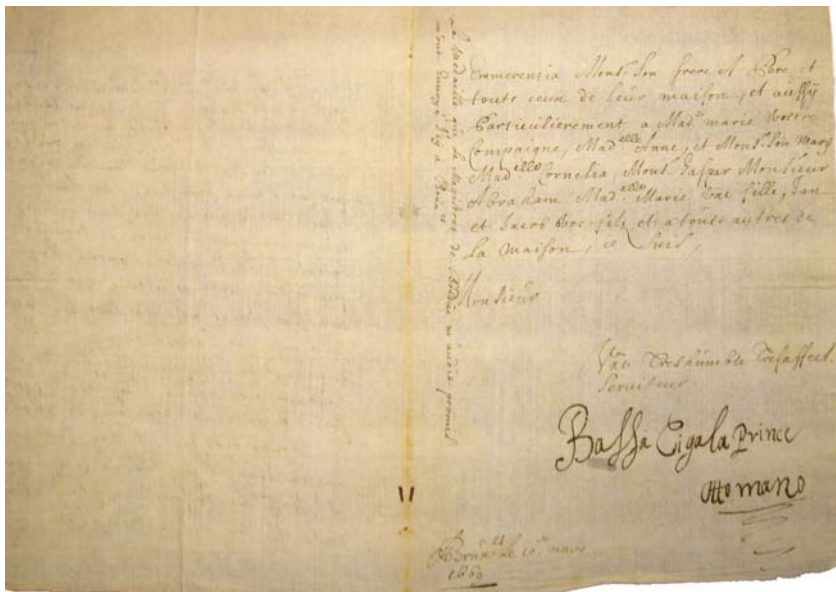 Emmerentia Mons.r Son frere et Pere et
touts ceux de leur maison, et aussy
Particulierement a Mad.e marie Vostre
Compaigne, Mad.elle Anne, et Mons.r Son Mary
Mad.elle Cornelia, Mons.r Jaspar Monsieur
Abraham Mad.elle Marie Vre fille, Jan
et Jacob Vos fils et a touts autres de
La Maison, je Suis,
Monsieur
Vre Tres humble Tresaffect.
Serviteur
Bassa Cigala Prince
Ottomano
Brux.les le 10.e mars
1660
La medaille que le de promis
m'ont a